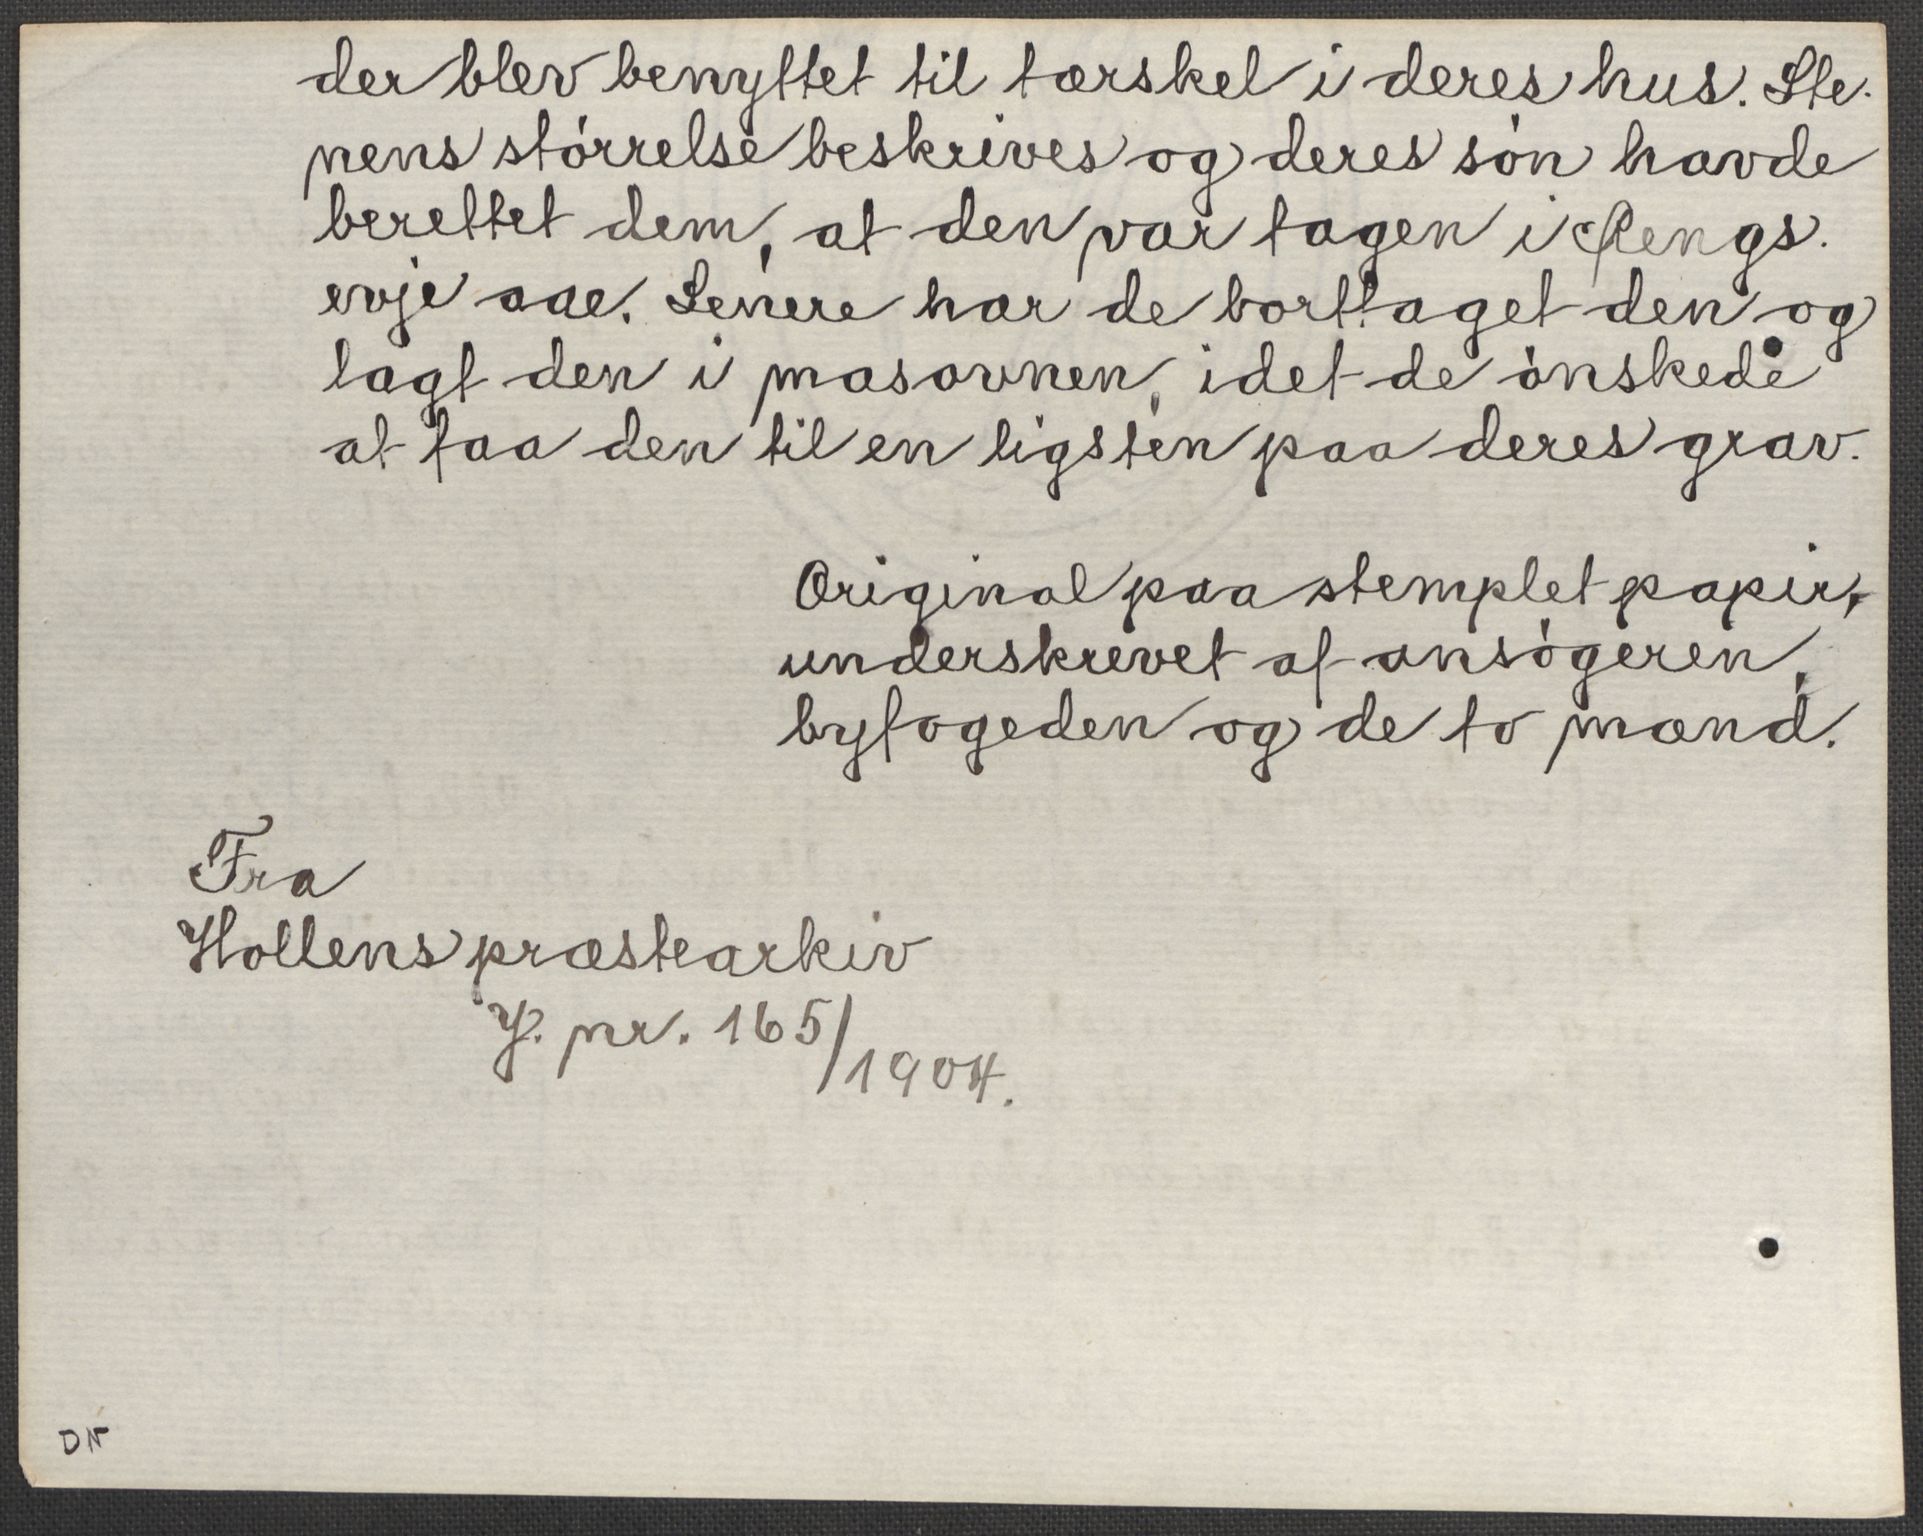 der blev benyttet til tærskel i deres hus. Ste-
nens störrelse beskrives og deres sön havde
berettet dem, at den var tagen i Rengs-
evje aae. Senere har de borttaget den og
lagt den i masovnen, idet de önskede
at faa den til en ligsten paa deres grav.
Original paa stemplet papir,
underskrevet af ansögeren,
byfogeden og de to mænd.
Fra
Hollens præstearkiv
J. nr. 165/1904.
DN